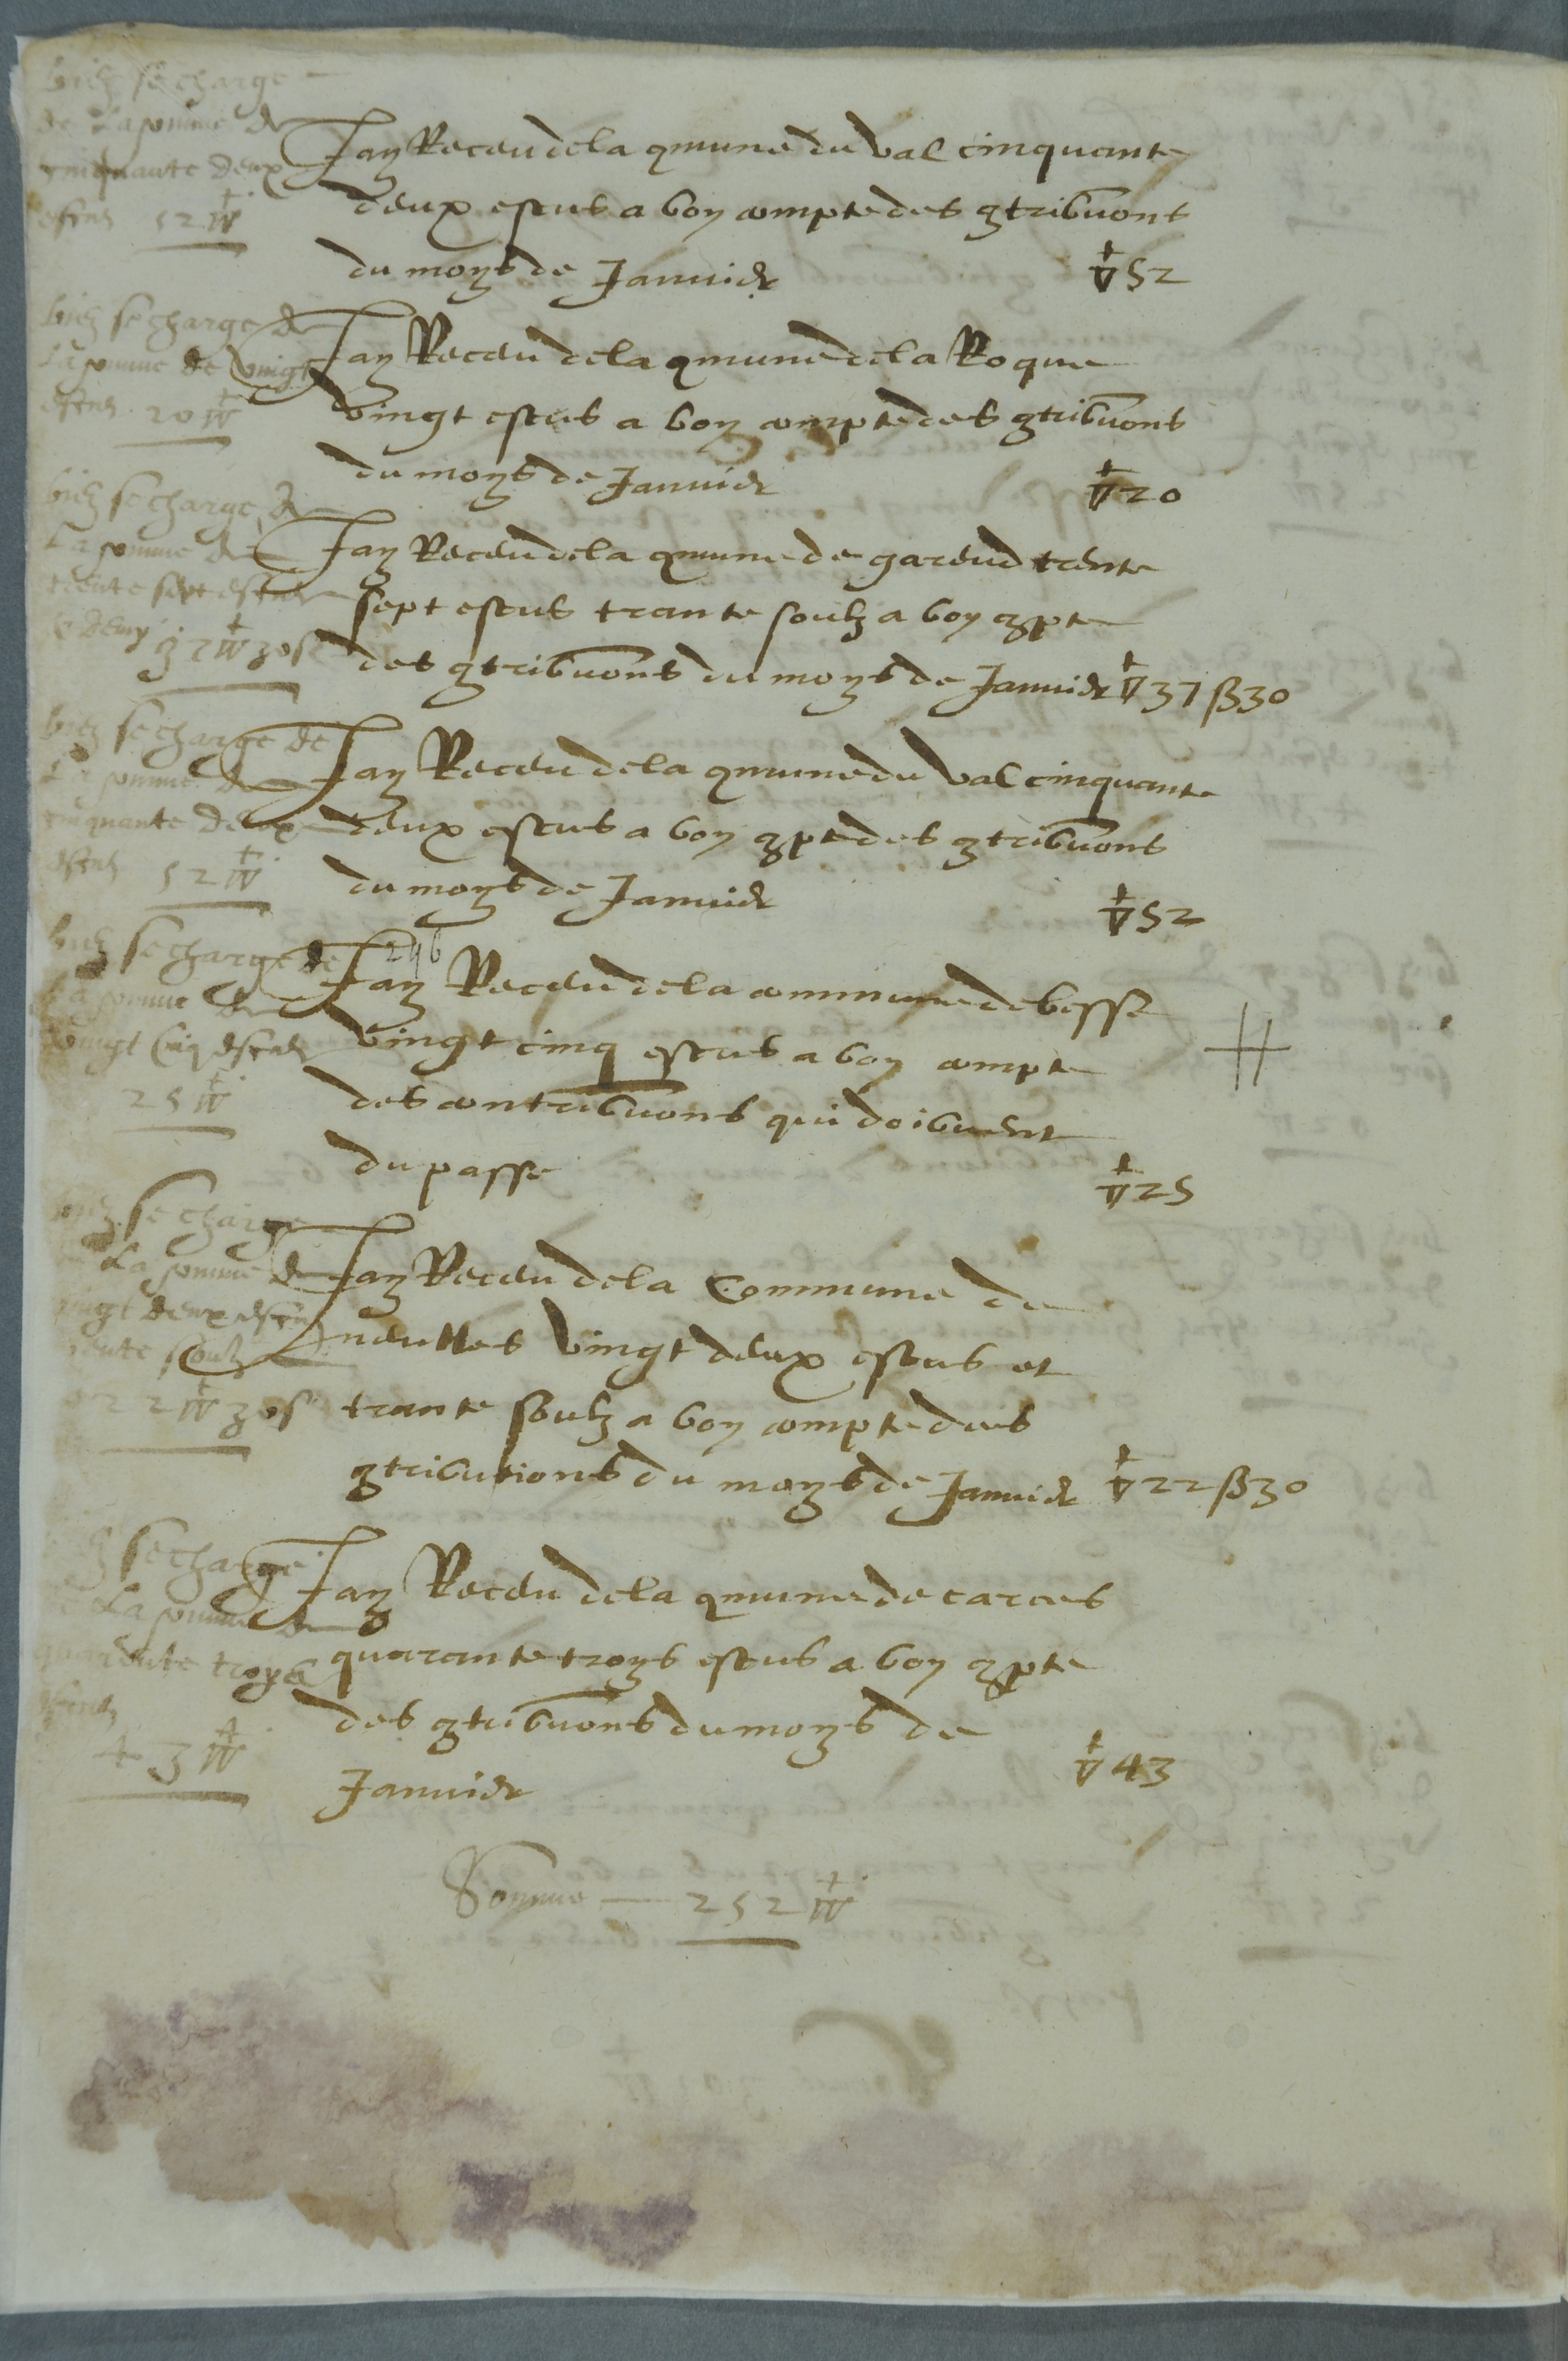 bien se charge
de la somme de
cinquante deux
escus 52 ▽
Jay Receu de la qmune du Val cinquante
deux escus a bon compte des qtribuons
du moys de Januier ▽ 52
bien se charge de
la somme de vingt
escus 20 ▽
Jay Receu de la qmune de la Roque
vingt escus a bon compte des qtribuons
du moys de Januier ▽ 20
bien se charge de
la somme de
trente sept escus
& demy 37 ▽ 30 s
Jay Receu de la qmune de gareud trente
sept escus trante soulz a bon qpte
des qtribuons du moys de Januier ▽ 37 ß 30
bien se charge de
la somme de
cinquante deux
escus 52 ▽
Jay Receu de la qmune du Val cinquante
deux escus a bon qpte des qtribuons
du moys de Januier ▽ 52
246
bien se charge de
la somme de
vingt cinq escus
25 ▽
Jay Receu de la commune de besse
vingt cinq escus a bon compte
des contribuons qui doibuent
du passe ▽ 25
bien se charge
la somme de
vingt deux escus
trente soulz
22 ▽ 30 s
Jay Receu de la Commune de
neulles vingt deux escus et
trante soulz a bon compte des
qtributions du moys de Januier ▽ 22 ß 30
se charge
la somme de
quarente troys
escus
43 ▽
Jay Receu de la qmune de carces
quarante troys escus a bon qpte
des qtribuons du moys de
Januier ▽ 43
Somme — 252 ▽